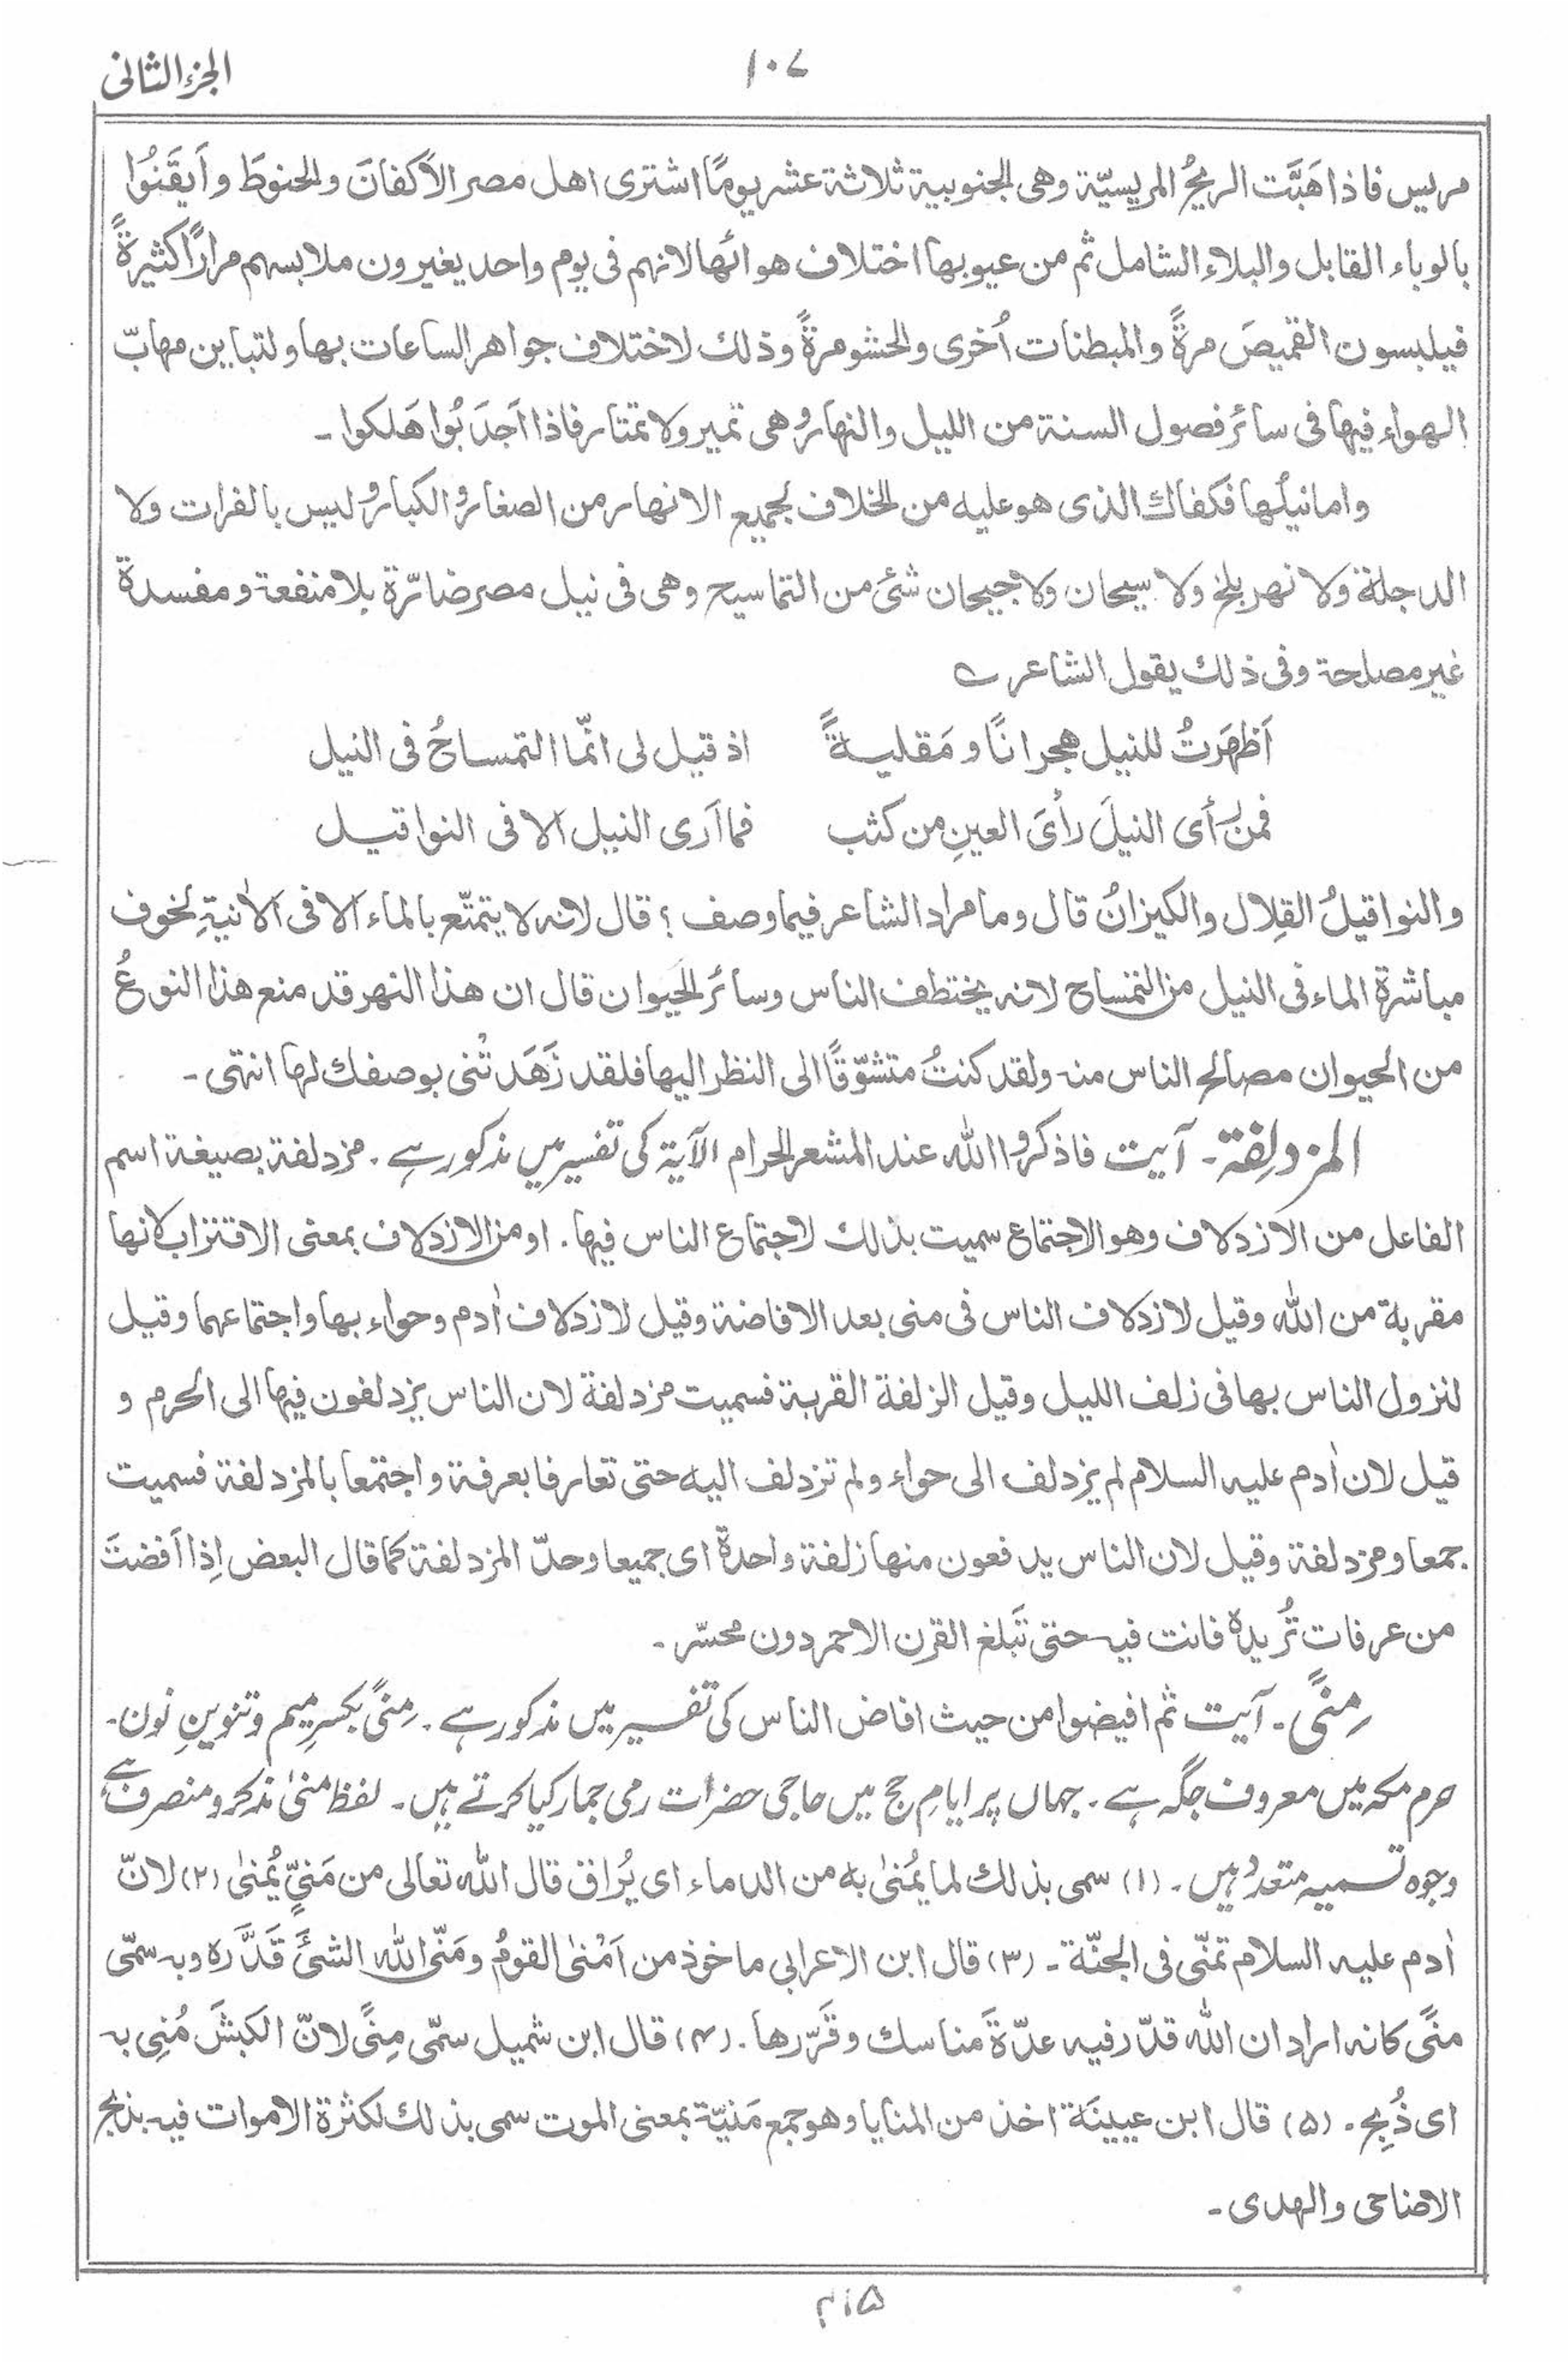 الجزء الثانی
١٠٧
مریس فاذا هَبَّت الریحُ المریسیّة وهی الجنوبیة ثلاثة عشر یومًا اشتری اهل مصر الاَکفانَ والحنوطَ و اَیقَنُوا
بالوباء القابل والبلاء الشامل ثم من عیوبها اختلاف هوائها لانهم فی یوم واحد یغیرون ملابسهم مرارًا کثیرةً
فیلبسون القمیصَ مرةً والمبطنات اُخری والحشو مرةً وذلك لاختلاف جواهر الساعات بها ولتباین مهابّ
الهواء فیها فی سائر فصول السنة من اللیل والنهار وهی تمیر ولا تمتار فاذا اَجدَبُوا هَلکوا ۔
واما نیلُها فکفاك الذی هو علیه من الخلاف لجمیع الانهار من الصغار والکبار ولیس بالفرات ولا
الدجلة ولا نهر بلخ ولا سیحان ولا جیحان شئ من التماسیح وهی فی نیل مصر ضارّة بلا منفعة و مفسدة
غیر مصلحة وفی ذلك یقول الشاعر ؎
اَظهَرتُ للنیل هجرانًا و مَقلیةً اذ قیل لی انّما التمساحُ فی النیل
فمن رأی النیلَ رأیَ العینِ من کثب فما اَری النیل الا فی النواقیل
والنواقیلُ القِلال والکیزانُ قال وما مراد الشاعر فیما وصف ؟ قال لانه لا یتمتّع بالماء الا فی الاٰنیةِ لخوف
مباشرة الماء فی النیل من التمساح لانه یختطف الناس وسائر الحیوان قال ان هذا النهر قد منع هذا النوعُ
من الحیوان مصالح الناس منه ولقد کنتُ متشوّقًا الی النظر الیها فلقد زَهَدتْنی بوصفك لها انتهی ۔
المزدلِفة ۔ آیت فاذکروا الله عند المشعر الحرام الآیة کی تفسیر میں مذکور ہے ۔ مزدلفة بصیغة اسم
الفاعل من الازدلاف وهو الاجتماع سمیت بذلك لاجتماع الناس فیها ۔ او من الازدلاف بمعنی الاقتراب لانها
مقربة من الله وقیل لازدلاف الناس فی منی بعد الافاضة وقیل لازدلاف اٰدم وحواء بها واجتماعهما وقیل
لنزول الناس بها فی زلف اللیل وقیل الزلفة القربة فسمیت مزدلفة لان الناس یزدلفون فیها الی الحرم و
قیل لان اٰدم علیه السلام لم یزدلف الی حواء ولم تزدلف الیه حتی تعارفا بعرفة واجتمعا بالمزدلفة فسمیت
جمعا ومزدلفة وقیل لان الناس یدفعون منها زلفة واحدة ای جمیعا وحدّ المزدلفة کما قال البعض اِذا اَفضتَ
من عرفات تُریده فانت فیه حتی تَبلغ القرن الاحمر دون محسّر ۔
مِنًی ۔ آیت ثم افیضوا من حیث افاض الناس کی تفسیر میں مذکور ہے ۔ مِنًی بکسرِ میم و تنوینِ نون ۔
حرم مکہ میں معروف جگہ ہے ۔ جہاں پر ایامِ حج میں حاجی حضرات رمی جمار کیا کرتے ہیں ۔ لفظ منیٰ مذکر و منصرف ہے
وجوہ تسمیہ متعدد ہیں ۔ (۱) سمی بذلك لما یُمنیٰ به من الدماء ای یُراق قال الله تعالی من مَنیٍّ یُمنیٰ (۲) لانّ
اٰدم علیه السلام تمنّی فی الجنّة ۔ (۳) قال ابن الاعرابی ماخوذ من اَمْنیٰ القومُ ومَنّی الله الشئَ قَدَّره وبه سمّی
منًی کانه اراد ان الله قدّر فیه عدّةَ مناسك وقَرّرها ۔ (۴) قال ابن شمیل سمّی مِنًی لانّ الکبشَ مُنِی به
ای ذُبِح ۔ (۵) قال ابن عیینَة اخذ من المنایا وهو جمع مَنیّة بمعنی الموت سمی بذلك لکثرة الاموات فیه بذبح
الاضاحی والهدی ۔
۲۱۵